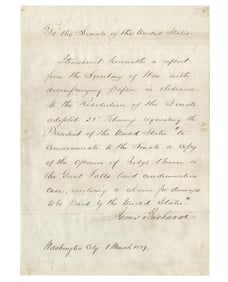 To the Senate of the United States.
I transmit herewith a report
from the Secretary of War with
accompanying Paper in obedience
to the Resolution of the Senate
adopted 23d February, requesting the
President of the United States "to
communicate to the Senate a copy
of the opinion of Judge in
the Great Falls land condemnation
case, involving a claim for damages
to be paid by the United States."
James Buchanan
Washington City 1 March 1859.